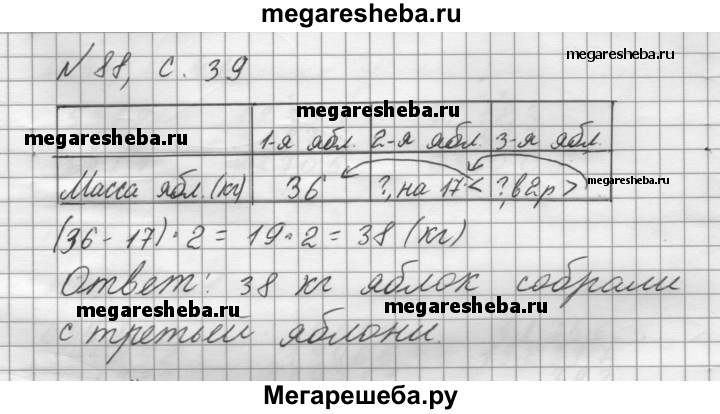 megaresheba.ru
N 88, с. 39
megaresheba.ru
megaresheba.ru
1-я ябл. 2-я ябл. 3-я ябл.
megaresheba.ru
Масса ябл. (кг) 36 ?, на 17 < ?, в 2 р >
megaresheba.ru
(36 - 17) · 2 = 19 · 2 = 38 (кг)
Ответ: 38 кг яблок собрали
megaresheba.ru
megaresheba.ru
с третьей яблони.
Мегарешеба.ру